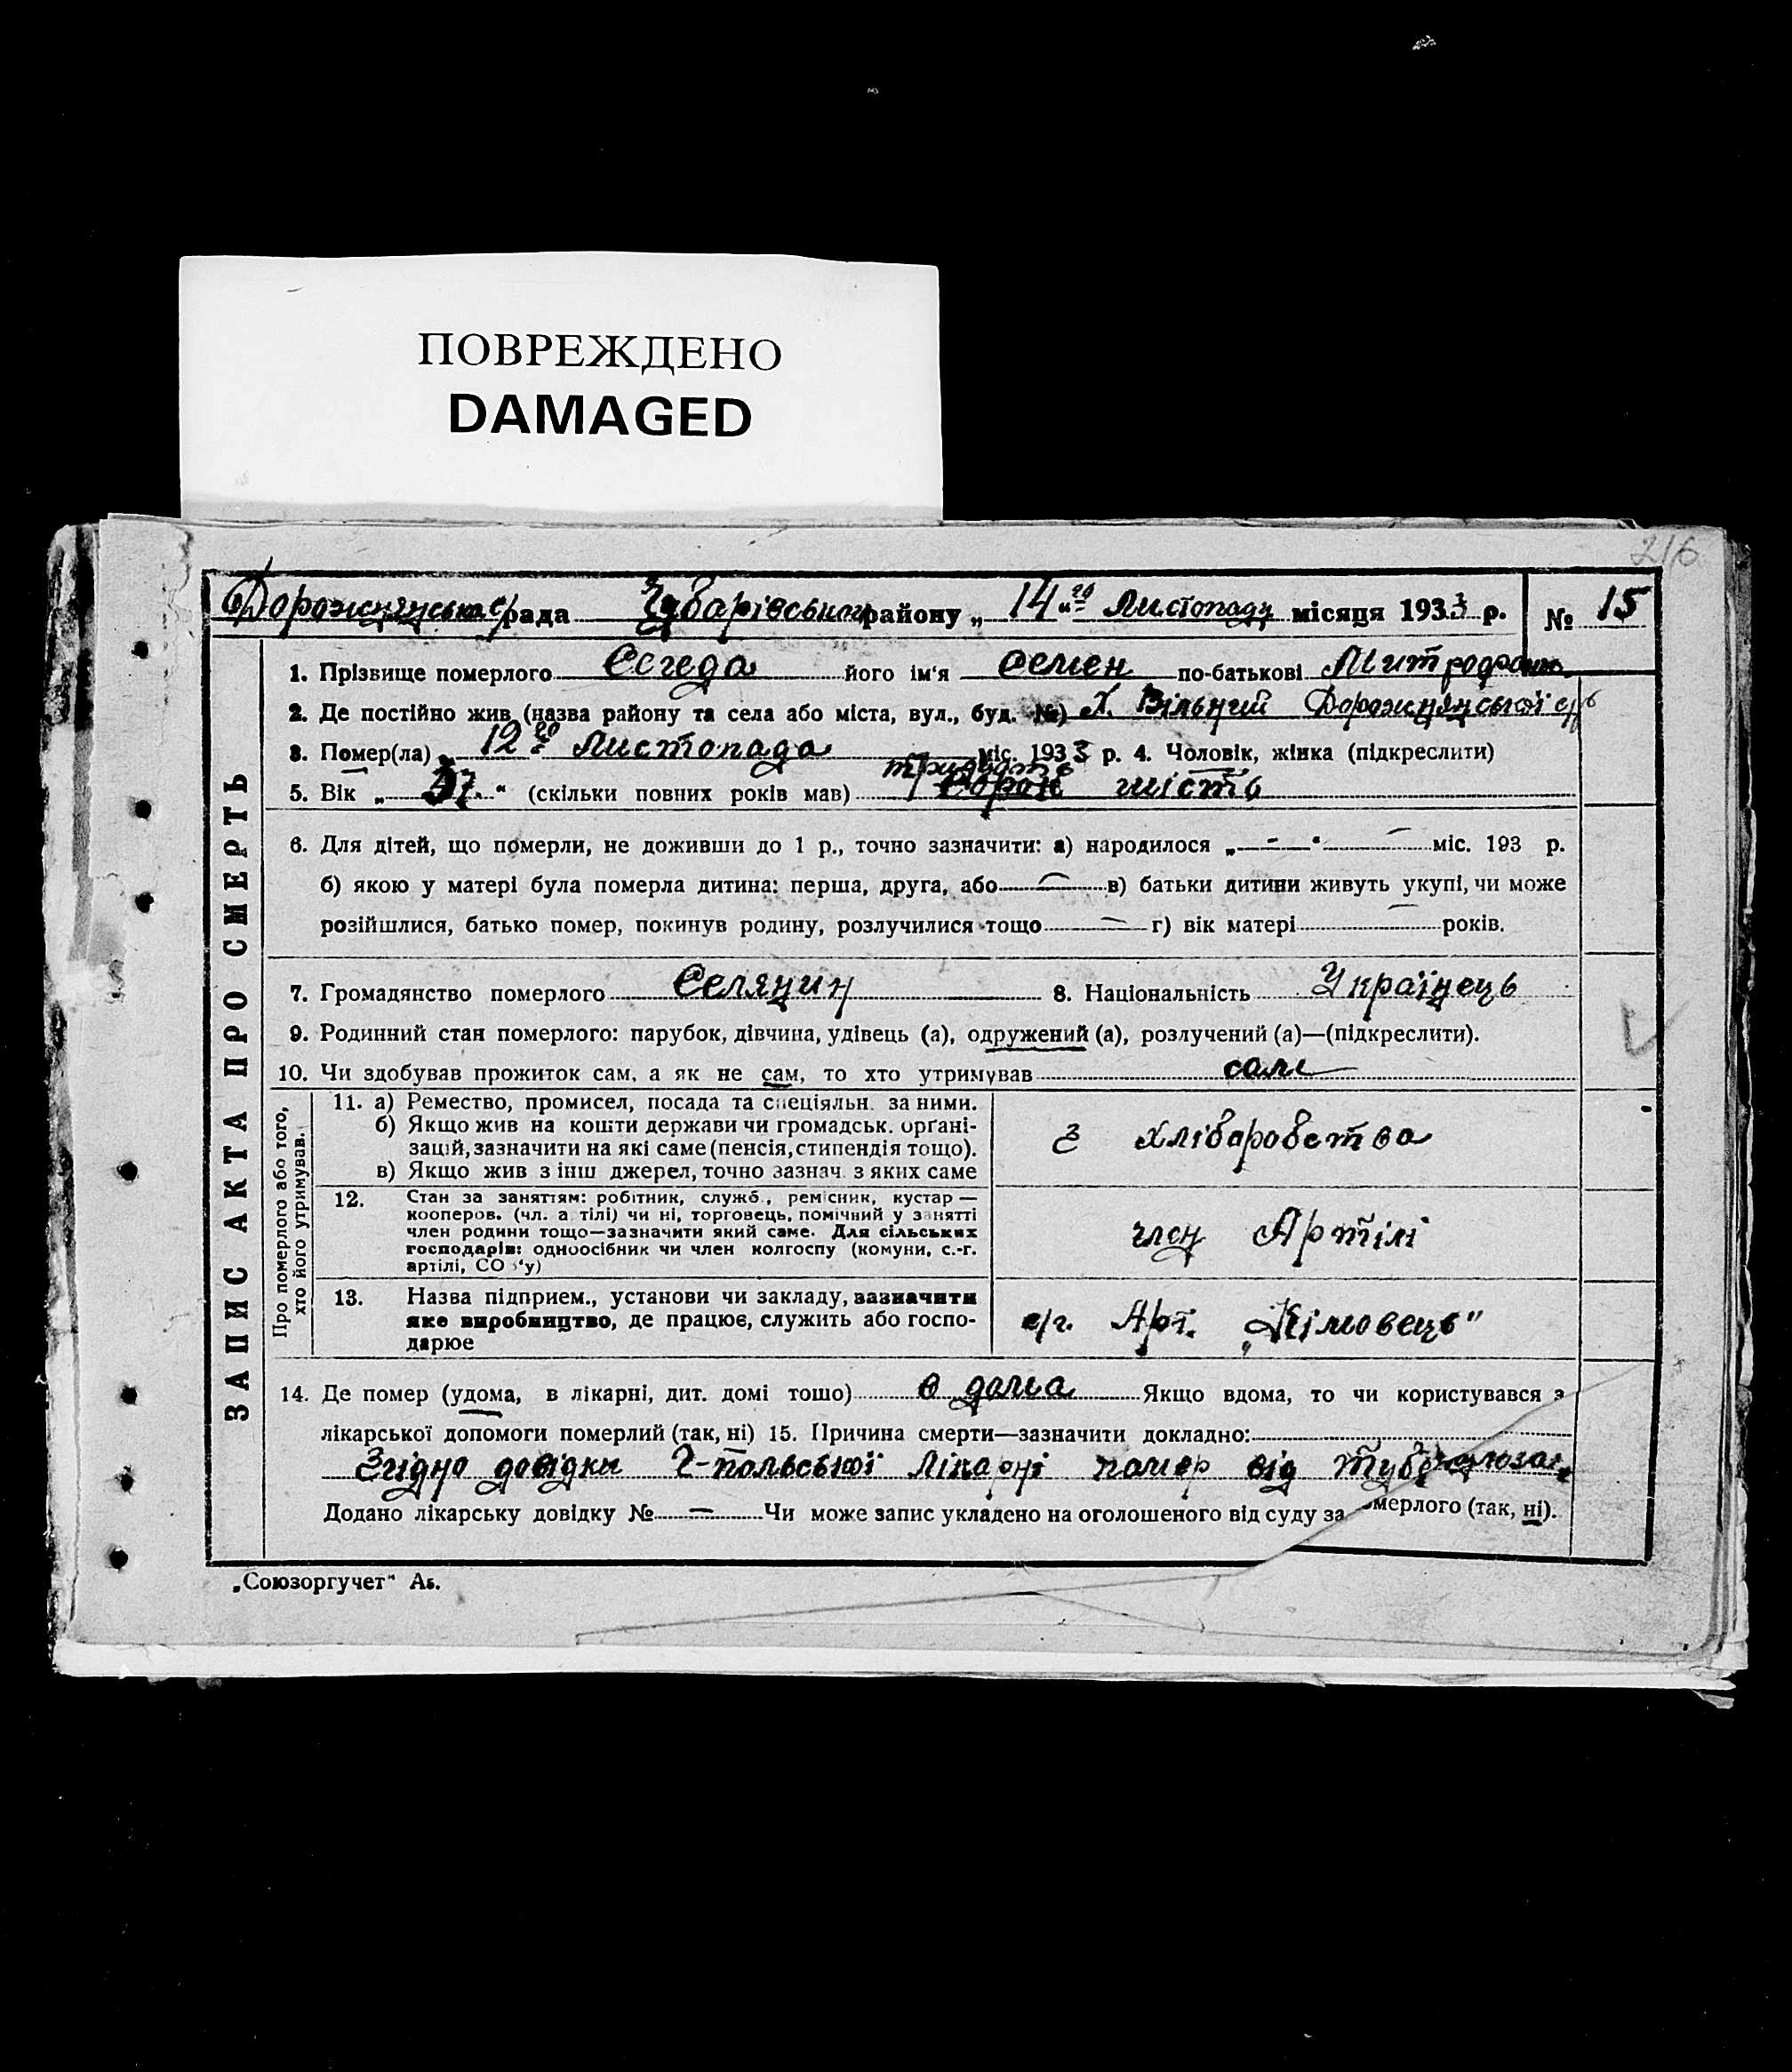 ПОВРЕЖДЕНО
DAMAGED
216
Дорожнянська с/рада Чубарівського району „14го“ Листопаду місяця 1933 р. № 15
ЗАПИС АКТА ПРО СМЕРТЬ
1. Прізвище померлого Сегеда його ім‘я Семен по-батькові Митрофан.
2. Де постійно жив (назва району та села або міста, вул., буд. №) Х. Вільний Дорожнянської с/р
3. Помер(ла) 12го Листопада міс. 1933 р. 4. Чоловік, жінка (підкреслити)
тридцять
5. Вік „ “ (скільки повних років мав) Сорок шість
6. Для дітей, що померли, не доживши до 1 р., точно зазначити: а) народилося „—“ — міс. 193 р.
б) якою у матері була померла дитина: перша, друга, або — в) батьки дитини живуть укупі, чи може
розійшлися, батько помер, покинув родину, розлучилися тощо — г) вік матері — років.
7. Громадянство померлого Селянин 8. Національність Українець
9. Родинний стан померлого: парубок, дівчина, удівець (а), одружений (а), розлучений (а)—(підкреслити).
10. Чи здобував прожиток сам, а як не сам, то хто утримував сам
Про померлого або того,
хто його утримував.
11. а) Ремество, промисел, посада та спеціяльн. за ними.
б) Якщо жив на кошти держави чи громадськ. орґані-
зацій, зазначити на які саме (пенсія, стипендія тощо).
в) Якщо жив з інш джерел, точно зазнач. з яких саме
з хліборобства
12. Стан за заняттям: робітник, служб., ремісник, кустар —
кооперов. (чл. а тілі) чи ні, торговець, помічний у занятті
член родини тощо—зазначити який саме. Для сільських
господарів: одноосібник чи член колгоспу (комуни, с.-г.
артілі, СО ‘у)
член Артілі
13. Назва підприєм., установи чи закладу, зазначити
яке виробництво, де працює, служить або госпо-
дарює
с/г. Арт.
14. Де помер (удома, в лікарні, дит. домі тощо) в дома Якщо вдома, то чи користувався з
лікарської допомоги померлий (так, ні) 15. Причина смерти—зазначити докладно:
Згідно довідки Г-польської лікарні помер від туберкульоза
Додано лікарську довідку № — Чи може запис укладено на оголошеного від суду за омерлого (так, ні).
„Союзоргучет“ Аб.